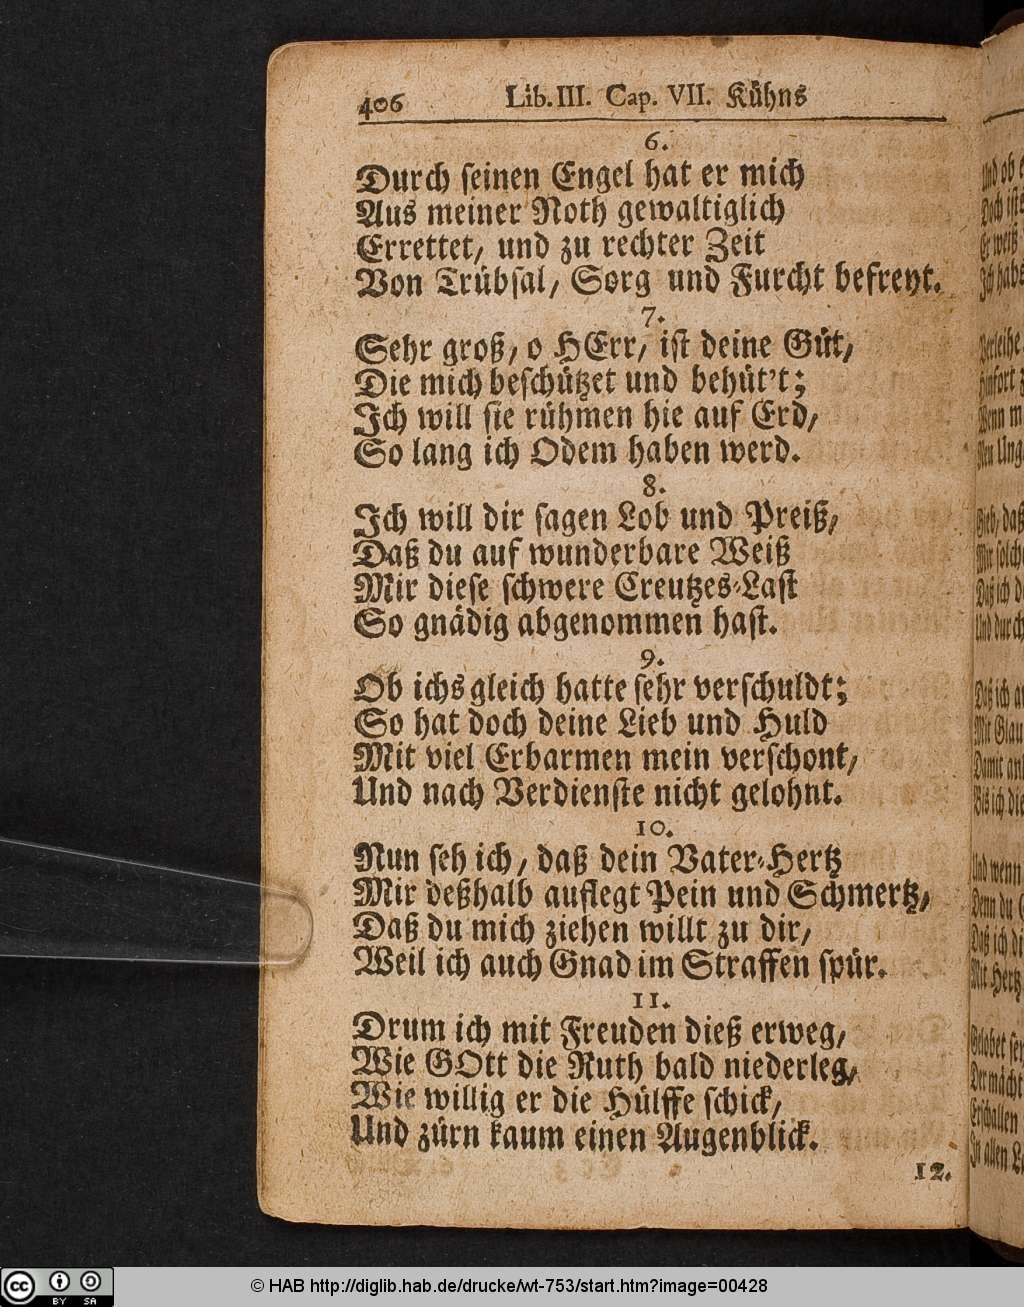 406 Lib. III. Cap. VII. Kühns
6.
Durch seinen Engel hat er mich
Aus meiner Noth gewaltiglich
Errettet, und zu rechter Zeit
Von Trübsal, Sorg und Furcht befreyt.
7.
Sehr groß, o HErr, ist deine Güt,
Die mich beschützet und behüt't;
Ich will sie rühmen hie auf Erd,
So lang ich Odem haben werd.
8.
Ich will dir sagen Lob und Preiß,
Daß du auf wunderbare Weiß
Mir diese schwere Creutzes-Last
So gnädig abgenommen hast.
9.
Ob ichs gleich hatte sehr verschuldt;
So hat doch deine Lieb und Huld
Mit viel Erbarmen mein verschont,
Und nach Verdienste nicht gelohnt.
10.
Nun seh ich, daß dein Vater-Hertz
Mir deßhalb auflegt Pein und Schmertz,
Daß du mich ziehen willt zu dir,
Weil ich auch Gnad im Straffen spür.
11.
Drum ich mit Freuden dieß erweg,
Wie GOtt die Ruth bald niederleg,
Wie willig er die Hülffe schick,
Und zürn kaum einen Augenblick.
12.
Und ob
Doch ist
Er weiß
Ich hab
Verleihe
Hinfort
Wenn
Gieb, daß
Mir solch
Daß ich
Und durch
Daß ich
Mit Glau
Damit
Bis ich die
Und wenn
Denn du
Daß ich di
Mit Hertz
Gelobet sey
Der mächt
Erschallen
In allen
cc BY SA
© HAB http://diglib.hab.de/drucke/wt-753/start.htm?image=00428